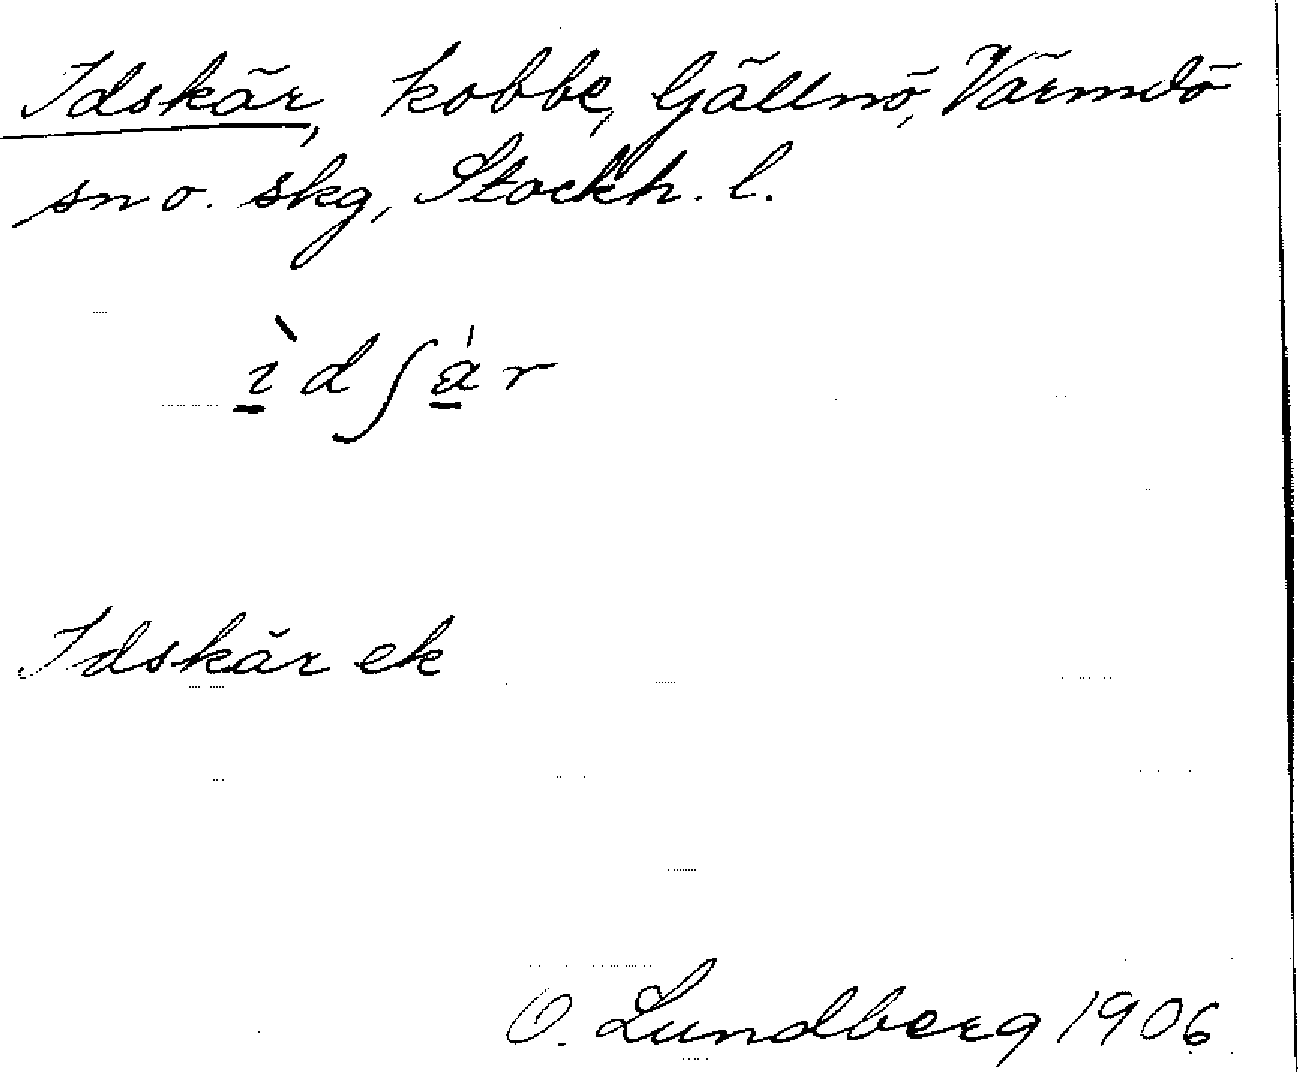 Idskär, kobbe, Gällnö, Värmdö
sn o. skg, Stockh. l.
ìdʃà̱r
Idskär ek
O. Lundberg 1906